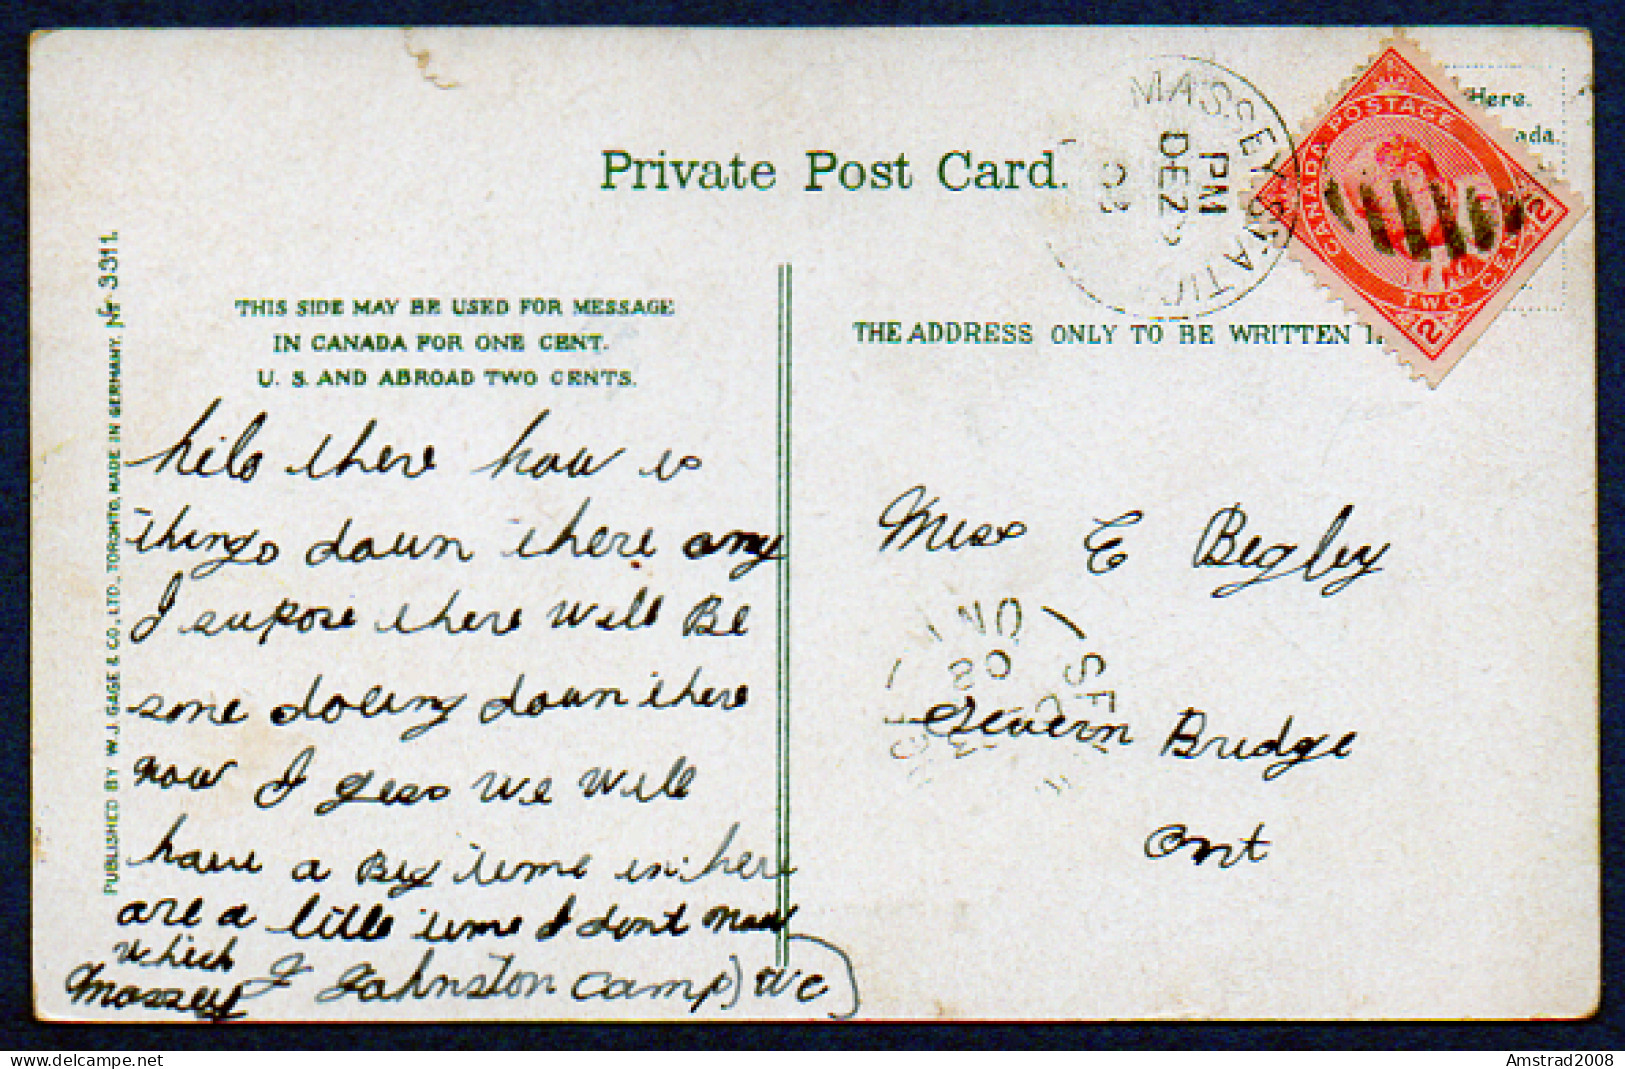 Private Post Card.
MASSEY STATIO
PM
DE 2
03
CANADA POSTAGE
TWO CENTS
2
2
Here.
ada.
THIS SIDE MAY BE USED FOR MESSAGE
IN CANADA FOR ONE CENT.
U. S. AND ABROAD TWO CENTS.
THE ADDRESS ONLY TO BE WRITTEN
PUBLISHED BY W. J. GAGE & CO., LTD., TORONTO, MADE IN GERMANY. Nr 3311.
hilo there how is
things down there any
I supose there will Be
some doling down there
now I gess we will
have a Big time in here
are a little time I dont now
which
Massey J Johnston Camp) WC
Miss E Begley
Severn Bridge
Ont
SE
ONT
08
Amstrad2008
delcampe.net